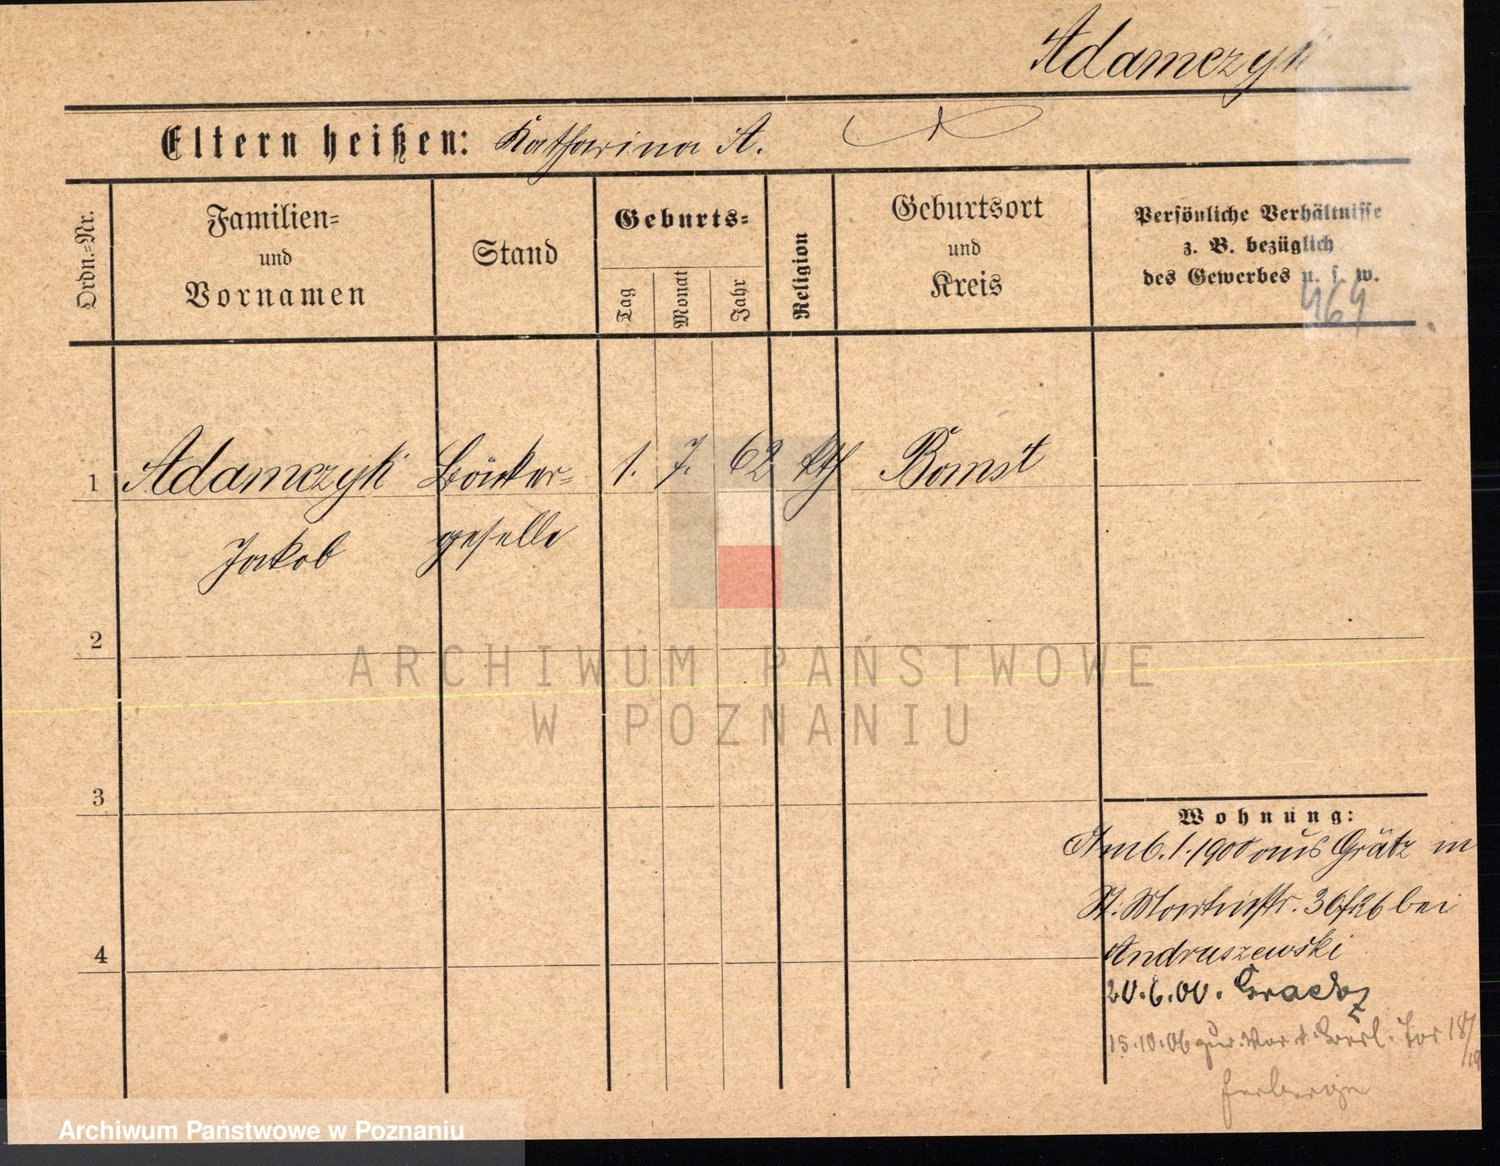 Adamczyk
Eltern heißen: Katharina A.
Ordn.-Nr.
Familien-
und
Vornamen
Stand
Geburts-
Tag
Monat
Jahr
Religion
Geburtsort
und
Kreis
Persönliche Verhältnisse
z. B. bezüglich
des Gewerbes u. s. w.
469
1 Adamczyk Bäcker- 1. 7. 62 kth Bomst
Jakob geselle
2
ARCHIWUM PAŃSTWOWE
W POZNANIU
3
Wohnung:
Am 6.1.1900 aus Grätz in
St. Martinstr. 36/26 bei
4 Andruszewski
20.6.00. Graetz
15.10.06 zur. Vor d. Berl. Tor 18/19
Herberge
Archiwum Państwowe w Poznaniu